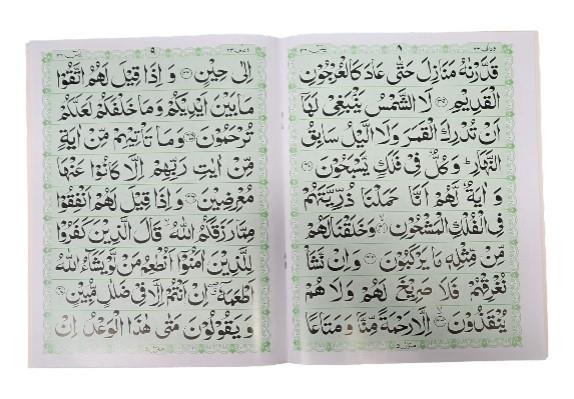 قَدَّرْنٰهُ مَنَازِلَ حَتّٰى عَادَ كَالْعُرْجُوْنِ
الْقَدِيْمِ ﴿۳۹﴾ لَا الشَّمْسُ يَنْۢبَغِيْ لَهَاۤ
اَنْ تُدْرِكَ الْقَمَرَ وَلَا الَّيْلُ سَابِقُ
النَّهَارِ ؕ وَكُلٌّ فِيْ فَلَكٍ يَّسْبَحُوْنَ ﴿۴۰﴾
وَ اٰيَةٌ لَّهُمْ اَنَّا حَمَلْنَا ذُرِّيَّتَهُمْ
فِي الْفُلْكِ الْمَشْحُوْنِ ﴿۴۱﴾ وَخَلَقْنَا لَهُمْ
مِّنْ مِّثْلِهٖ مَا يَرْكَبُوْنَ ﴿۴۲﴾ وَاِنْ نَّشَاْ
نُغْرِقْهُمْ فَلَا صَرِيْخَ لَهُمْ وَلَا هُمْ
يُنْقَذُوْنَ ﴿۴۳﴾ اِلَّا رَحْمَةً مِّنَّا وَ مَتَاعًا
۹
اِلٰى حِيْنٍ ﴿۴۴﴾ وَ اِذَا قِيْلَ لَهُمُ اتَّقُوْا
مَا بَيْنَ اَيْدِيْكُمْ وَمَا خَلْفَكُمْ لَعَلَّكُمْ
تُرْحَمُوْنَ ﴿۴۵﴾ وَمَا تَاْتِيْهِمْ مِّنْ اٰيَةٍ
مِّنْ اٰيٰتِ رَبِّهِمْ اِلَّا كَانُوْا عَنْهَا
مُعْرِضِيْنَ ﴿۴۶﴾ وَاِذَا قِيْلَ لَهُمْ اَنْفِقُوْا
مِمَّا رَزَقَكُمُ اللّٰهُ ۙ قَالَ الَّذِيْنَ كَفَرُوْا
لِلَّذِيْنَ اٰمَنُوْۤا اَنُطْعِمُ مَنْ لَّوْ يَشَآءُ اللّٰهُ
اَطْعَمَهٗۤ ۖ اِنْ اَنْتُمْ اِلَّا فِيْ ضَلٰلٍ مُّبِيْنٍ ﴿۴۷﴾
وَ يَقُوْلُوْنَ مَتٰى هٰذَا الْوَعْدُ اِنْ